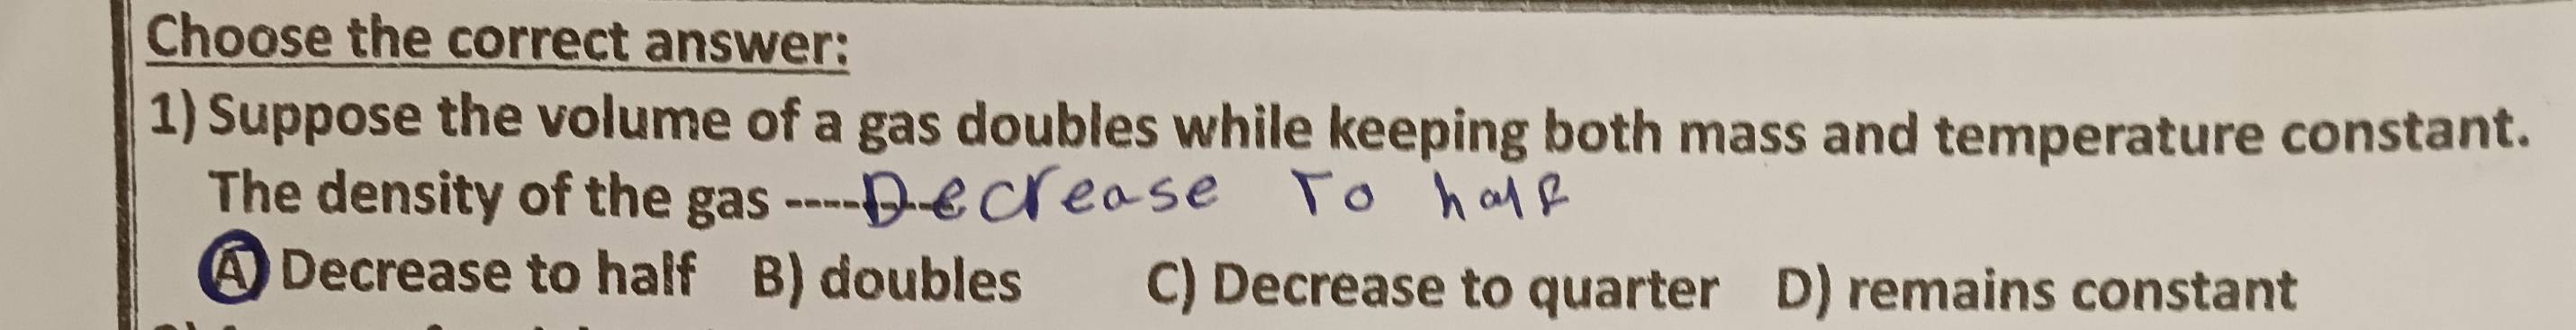 Choose the correct answer:
1) Suppose the volume of a gas doubles while keeping both mass and temperature constant.
The density of the gas --------- Decrease To half
A) Decrease to half B) doubles C) Decrease to quarter D) remains constant